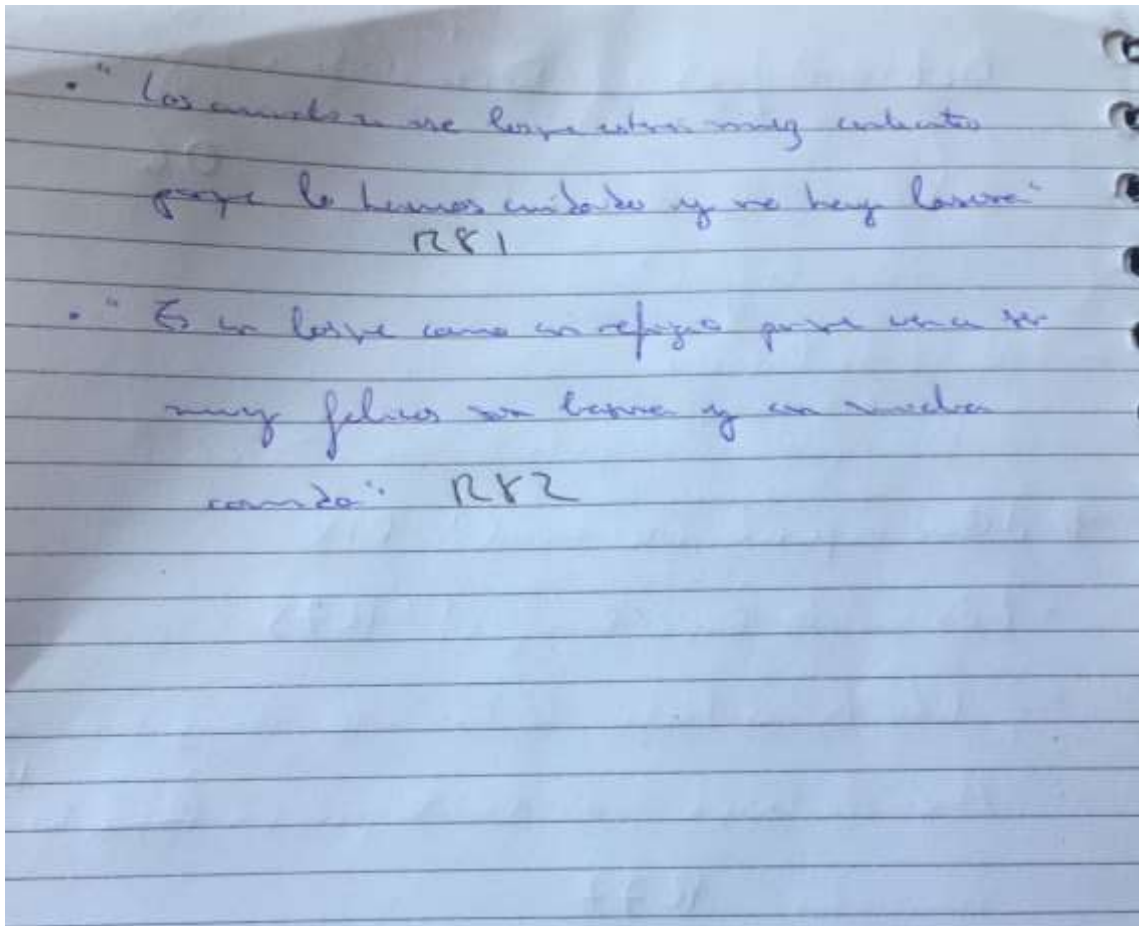 • "Los animales en ese bosque están muy contentos
porque lo hemos cuidado y no hay basura"
R81
• "Es un bosque como un refugio porque van a ser
muy felices sin basura y con mucha
comida" R82